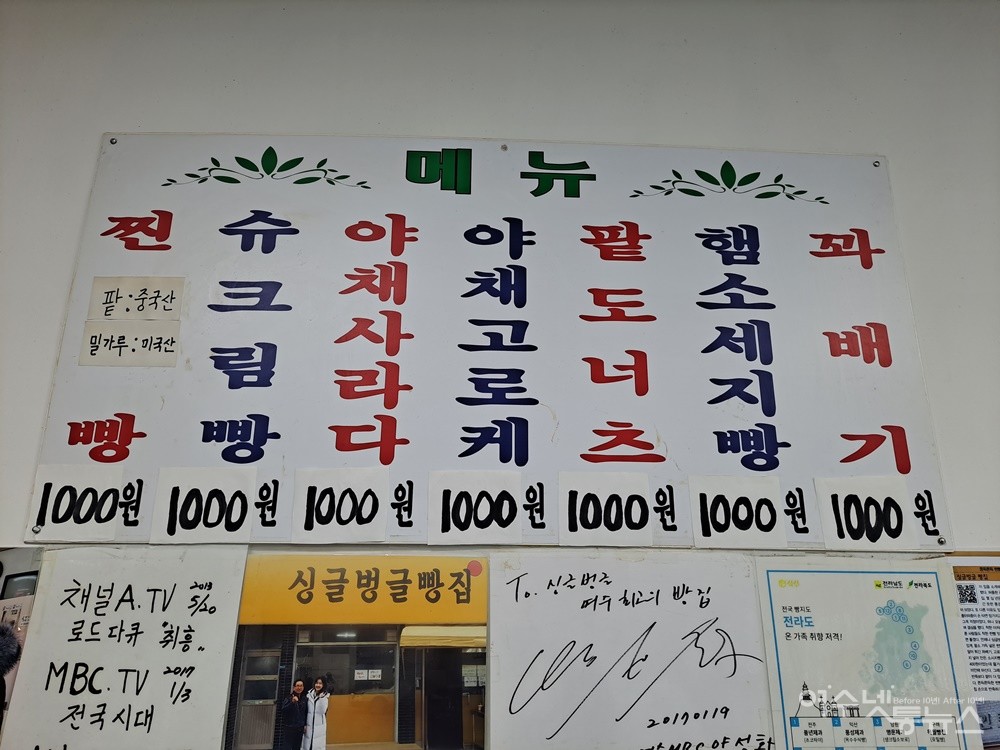 메뉴
찐빵
팥:중국산
밀가루:미국산
슈크림빵
야채사라다
야채고로케
팥도너츠
햄소세지빵
꽈배기
1000원 1000원 1000원 1000원 1000원 1000원 1000원
채널A.TV 2013 5/20
로드다큐 "취흥"
MBC.TV 2017 1/3
전국시대
싱글벙글빵집
To. 싱글벙글
여수 최고의 빵집
20170119
전라남도 전라북도
전국 빵지도
전라도
온 가족 취향 저격!
전주 풍년제과
익산 풍성제과
싱글벙글 빵집
여수넷통뉴스
Before 10년! After 10년!